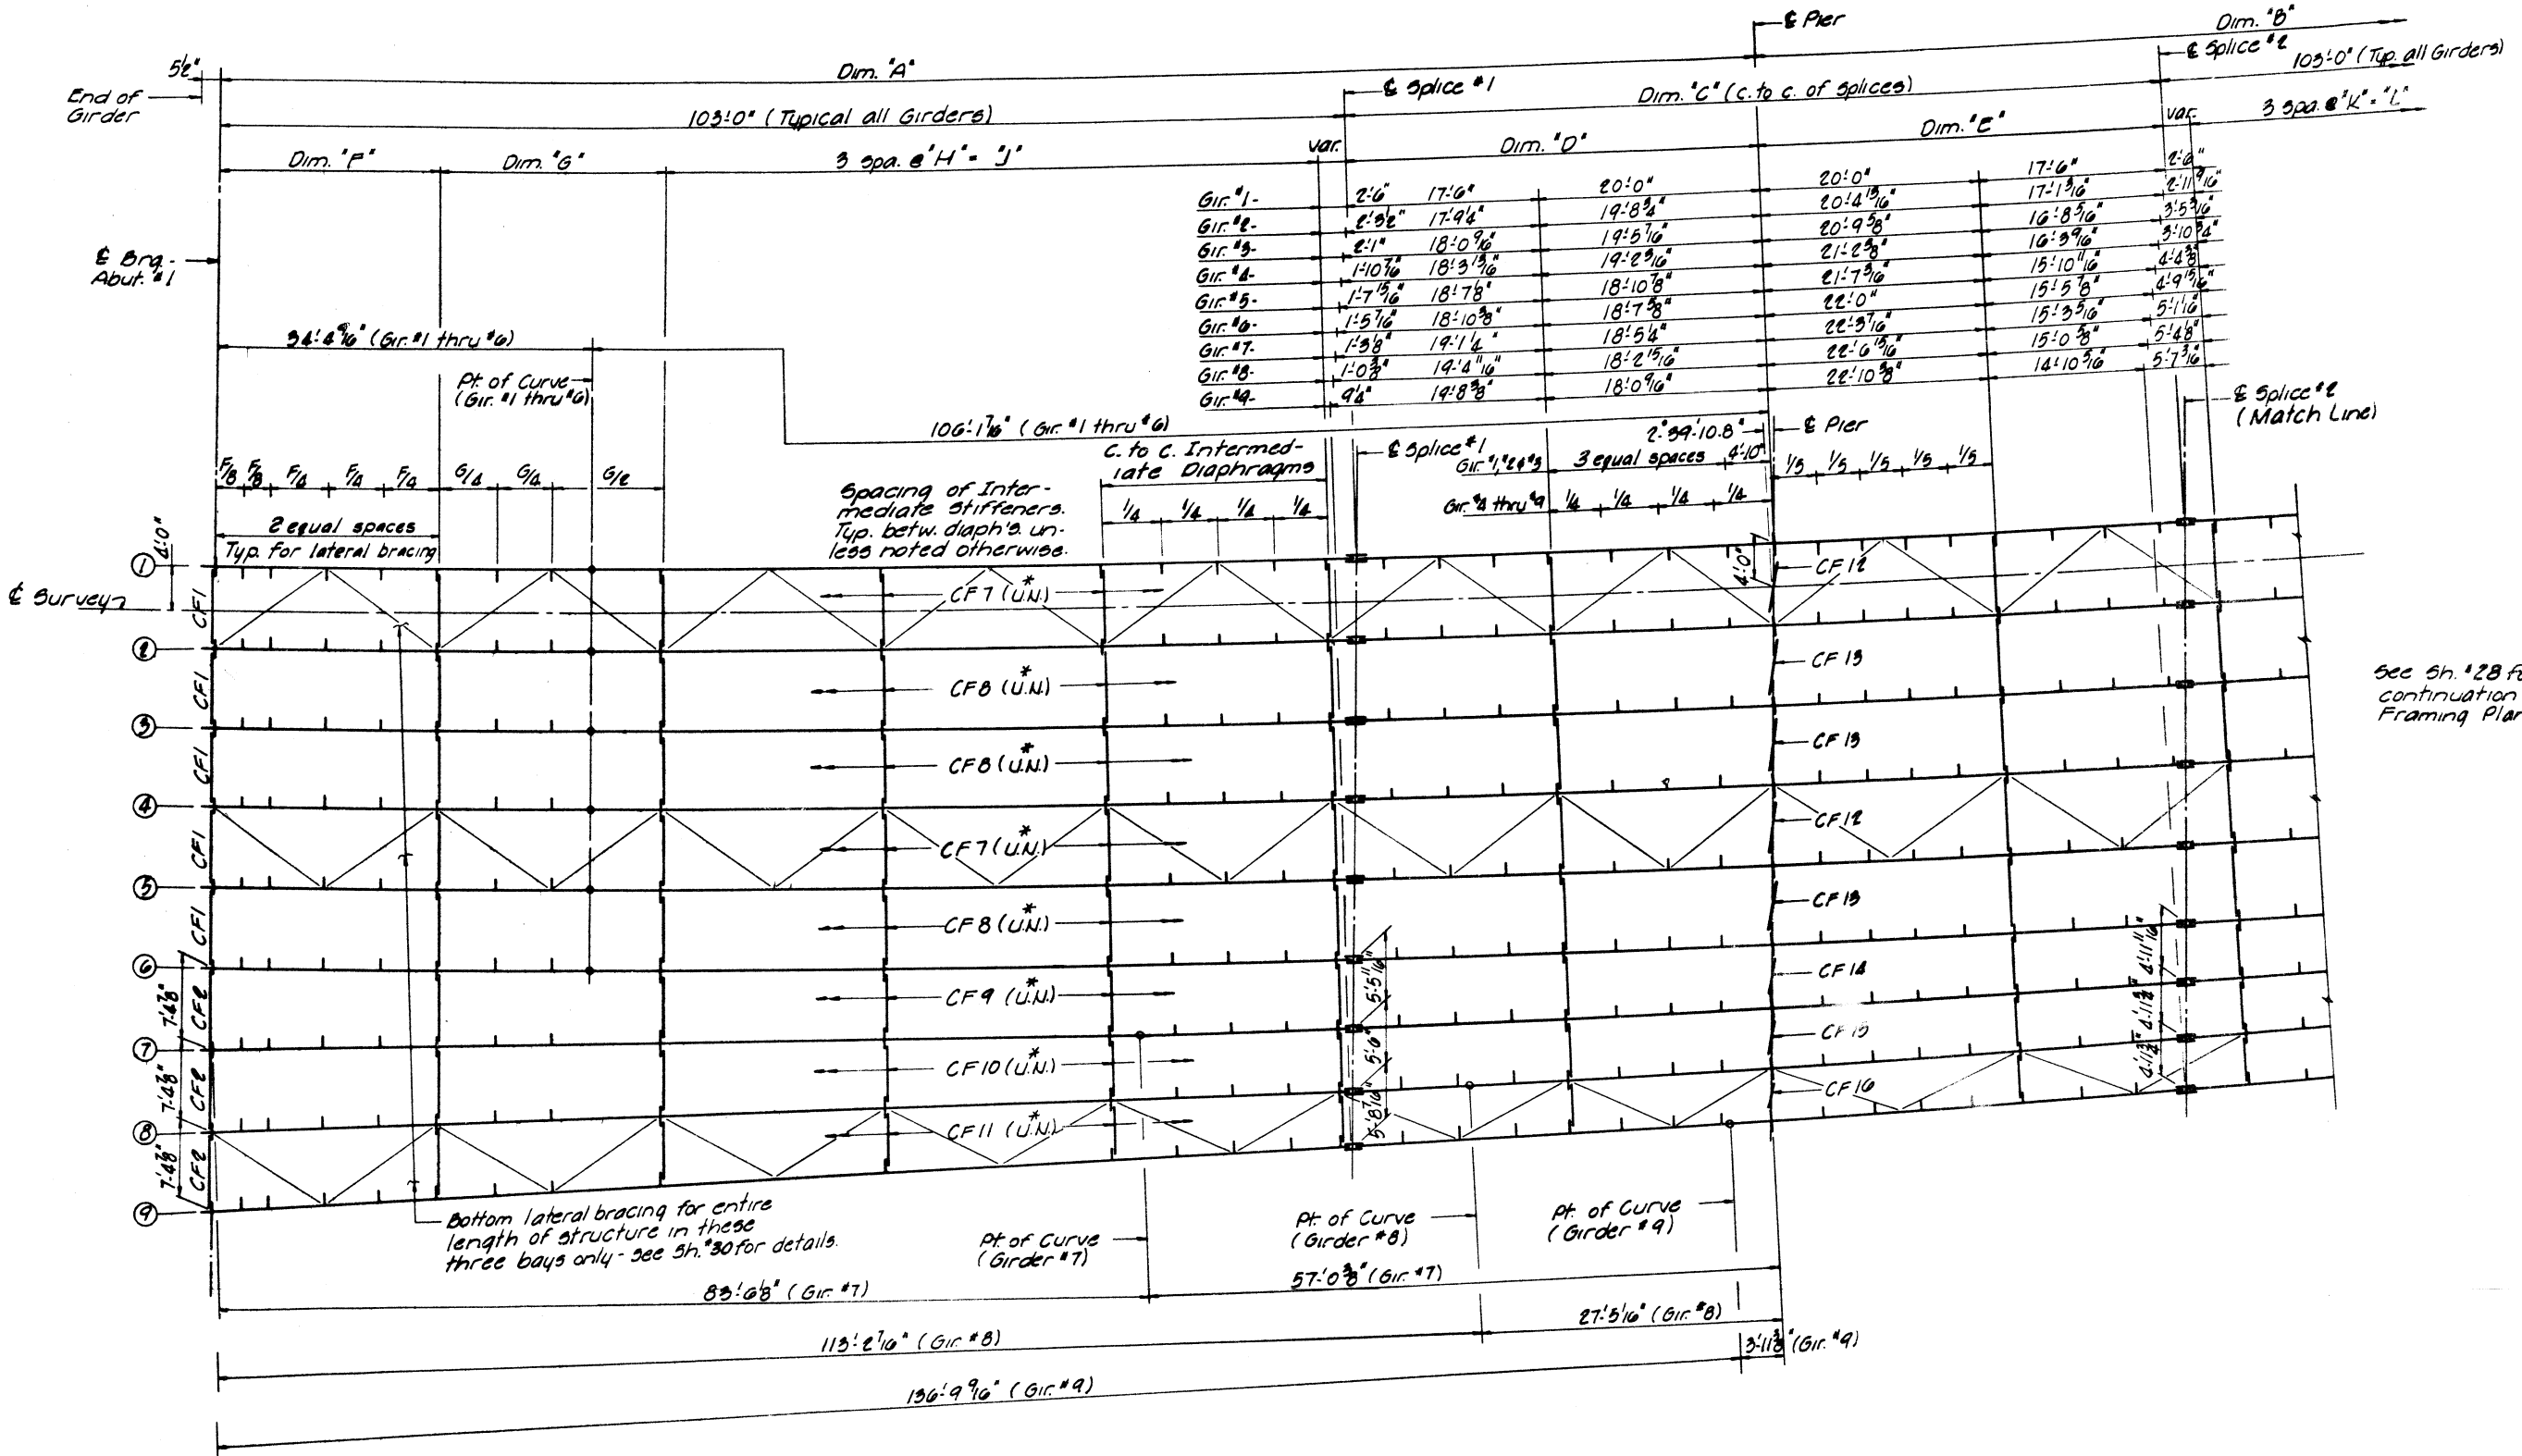 ℄ Pier
Dim. "B"
5½"
Dim. "A"
℄ Splice #2
End of
Girder
℄ Splice #1
Dim. "C" (c. to c. of splices)
103'-0" (Typ. all Girders)
103'-0" (Typical all Girders)
var.
3 spa. @ "K" = "L"
Dim. "F"
Dim. "G"
3 spa. @ "H" = "J"
var.
Dim. "D"
Dim. "E"
Gir. #1- 2'-6" 17'-6" 20'-0" 20'-0" 17'-6" 2'-6"
Gir. #2- 2'-3½" 17'-9¼" 19'-8¾" 20'-4 13/16" 17'-1 3/16" 2'-11 9/16"
Gir. #3- 2'-1" 18'-0 9/16" 19'-5 7/16" 20'-9 5/8" 16'-8 5/16" 3'-5 3/16"
Gir. #4- 1'-10 7/16" 18'-3 13/16" 19'-2 3/16" 21'-2 3/8" 16'-3 9/16" 3'-10 3/4"
Gir. #5- 1'-7 15/16" 18'-7 1/8" 18'-10 7/8" 21'-7 3/16" 15'-10 11/16" 4'-4 3/8"
Gir. #6- 1'-5 7/16" 18'-10 3/8" 18'-7 5/8" 22'-0" 15'-5 7/8" 4'-9 15/16"
Gir. #7- 1'-3 1/8" 19'-1 1/4" 18'-5 1/4" 22'-3 7/16" 15'-3 5/16" 5'-1 1/16"
Gir. #8- 1'-0 3/8" 19'-4 11/16" 18'-2 15/16" 22'-6 15/16" 15'-0 5/8" 5'-4 1/8"
Gir. #9- 9 1/4" 19'-8 3/8" 18'-0 9/16" 22'-10 3/8" 14'-10 5/16" 5'-7 3/16"
℄ Brg.-
Abut. #1
34'-4 9/16" (Gir. #1 thru #6)
Pt. of Curve
(Gir. #1 thru #6)
℄ Splice #2
(Match Line)
106'-1 7/16" (Gir. #1 thru #6)
2°39'-10.8"
℄ Pier
F/8 F/8 F/4 F/4 F/4 G/4 G/4 G/2
C. to C. Intermed-
iate Diaphragms
℄ Splice #1
Gir. #1, #2 & #3 3 equal spaces 4'-10"
1/5 1/5 1/5 1/5 1/5
Spacing of Inter-
mediate Stiffeners.
Typ. betw. diaph's. un-
less noted otherwise.
1/4 1/4 1/4 1/4
Gir. #4 thru #9 1/4 1/4 1/4 1/4
2 equal spaces
Typ. for lateral bracing
4'-0"
1
℄ Survey
CF1
CF7 (U.N.)*
4'-0"
CF12
2
CF1
CF8 (U.N.)*
CF13
See Sh. #28
continuation
3
CF1
CF8 (U.N.)*
CF13
4
CF1
CF7 (U.N.)*
CF12
5
CF1
CF8 (U.N.)*
CF13
6
7'-4 7/8"
CF2
CF9 (U.N.)*
5'-5 11/16"
CF14
4'-11 1/16"
7
7'-4 7/8"
CF2
CF10 (U.N.)*
5'-6"
CF15
4'-11 3/4"
8
7'-4 7/8"
CF2
CF11 (U.N.)*
5'-8 7/16"
CF16
4'-11 3/4"
9
Bottom lateral bracing for entire
length of structure in these
three bays only - see Sh. #30 for details.
Pt. of Curve
(Girder #7)
Pt. of Curve
(Girder #8)
Pt. of Curve
(Girder #9)
83'-6 1/8" (Gir. #7)
57'-0 3/8" (Gir. #7)
113'-2 7/16" (Gir. #8)
27'-5/16" (Gir. #8)
3'-11 3/8" (Gir. #9)
136'-9 9/16" (Gir. #9)